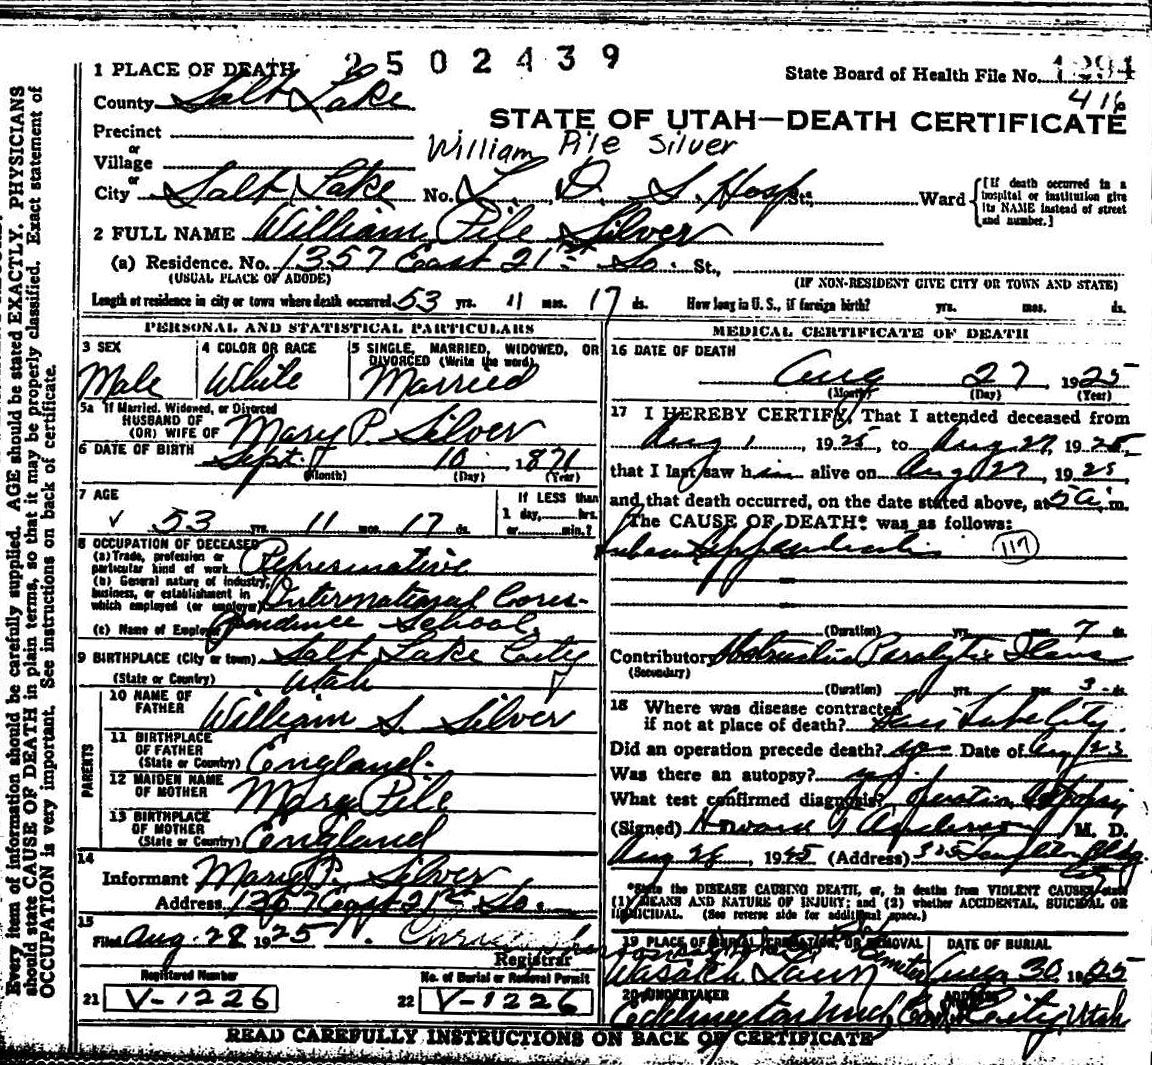 1 PLACE OF DEATH 2502439
State Board of Health File No. 1394
416
County Salt Lake
STATE OF UTAH—DEATH CERTIFICATE
Precinct
or
William Pile Silver
Village
or
City Salt Lake No. L. D. S. Hosp St., Ward [If death occurred in a hospital or institution give its NAME instead of street and number.]
2 FULL NAME William Pile Silver
(a) Residence. No. 1357 East 21st So. St.,
(USUAL PLACE OF ABODE) (IF NON-RESIDENT GIVE CITY OR TOWN AND STATE)
Length of residence in city or town where death occurred 53 yrs. 11 mos. 17 ds. How long in U. S., if foreign birth? yrs. mos. ds.
PERSONAL AND STATISTICAL PARTICULARS
3 SEX 4 COLOR OR RACE 5 SINGLE, MARRIED, WIDOWED, OR
DIVORCED (Write the word)
Male White Married
5a If Married, Widowed, or Divorced
HUSBAND OF
(OR) WIFE OF Mary P. Silver
6 DATE OF BIRTH Sept. 10 1871
(Month) (Day) (Year)
7 AGE If LESS than
53 yrs. 11 mos. 17 ds. 1 day, hrs.
or min.?
8 OCCUPATION OF DECEASED
(a) Trade, profession or
particular kind of work Represenative
(b) General nature of industry,
business, or establishment in
which employed (or employer) International Cores-
(c) Name of Employer pondence School
9 BIRTHPLACE (City or town) Salt Lake City
(State or Country) Utah
PARENTS
10 NAME OF
FATHER William S. Silver
11 BIRTHPLACE
OF FATHER
(State or Country) England.
12 MAIDEN NAME
OF MOTHER Mary Pile
13 BIRTHPLACE
OF MOTHER
(State or Country) England
14
Informant Mary P. Silver
Address 1357 East 21st So.
15
Filed Aug. 28 1925
Registrar
Registered Number No. of Burial or Removal Permit
21 V-1226 22 V-1226
MEDICAL CERTIFICATE OF DEATH
16 DATE OF DEATH
Aug 27, 1925
(Month) (Day) (Year)
17 I HEREBY CERTIFY, That I attended deceased from
Aug 1, 1925, to Aug 27, 1925,
that I last saw him alive on Aug 27, 1925,
and that death occurred, on the date stated above, at 5 a. m.
The CAUSE OF DEATH* was as follows:
Appendicitis 117
(Duration) yrs. mos. 7 ds.
Contributory Obstructive Paralytic Ileus
(Secondary)
(Duration) yrs. mos. 3 ds.
18 Where was disease contracted
if not at place of death? Lake City
Did an operation precede death? yes Date of Aug/23
Was there an autopsy? yes.
What test confirmed diagnosis? operation Autopsy
(Signed) Howard T Anderson M. D.
Aug 28, 1925 (Address) 305 Templeton Bldg.
City
*State the DISEASE CAUSING DEATH, or, in deaths from VIOLENT CAUSES, state
(1) MEANS AND NATURE OF INJURY; and (2) whether ACCIDENTAL, SUICIDAL OR
HOMICIDAL. (See reverse side for additional space.)
19 PLACE OF BURIAL, CREMATION, OR REMOVAL DATE OF BURIAL
Wasatch Lawn Aug 30 1925
20 UNDERTAKER ADDRESS
City, Utah
READ CAREFULLY INSTRUCTIONS ON BACK OF CERTIFICATE
Every item of information should be carefully supplied. AGE should be stated EXACTLY. PHYSICIANS
should state CAUSE OF DEATH in plain terms, so that it may be properly classified. Exact statement of
OCCUPATION is very important. See instructions on back of certificate.